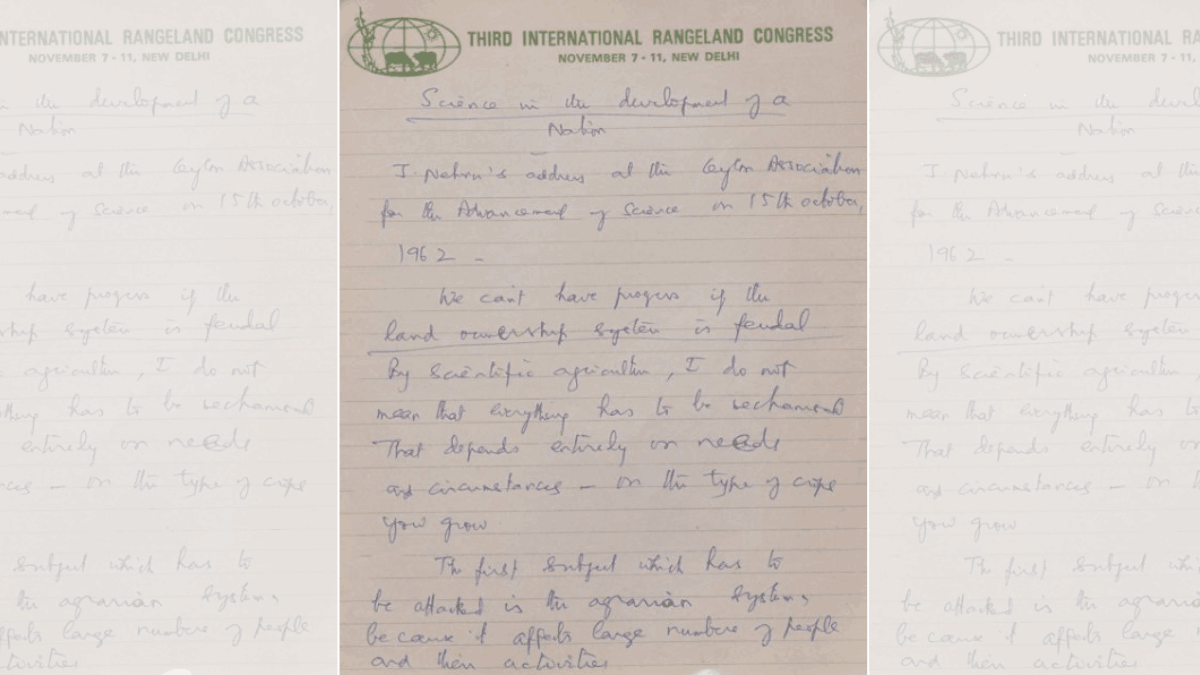 THIRD INTERNATIONAL RANGELAND CONGRESS
NOVEMBER 7 - 11, NEW DELHI
Science in the development of a
Nation
J. Nehru's address at the Ceylon Association
for the Advancement of Science on 15th october,
1962 -
We can't have progress if the
land ownership system is feudal
By Scientific agriculture, I do not
mean that everything has to be mechanised
That depends entirely on needs
and circumstances - on the type of crops
you grow
The first subject which has to
be attacked is the agrarian system,
because it affects large numbers of people
and their activities